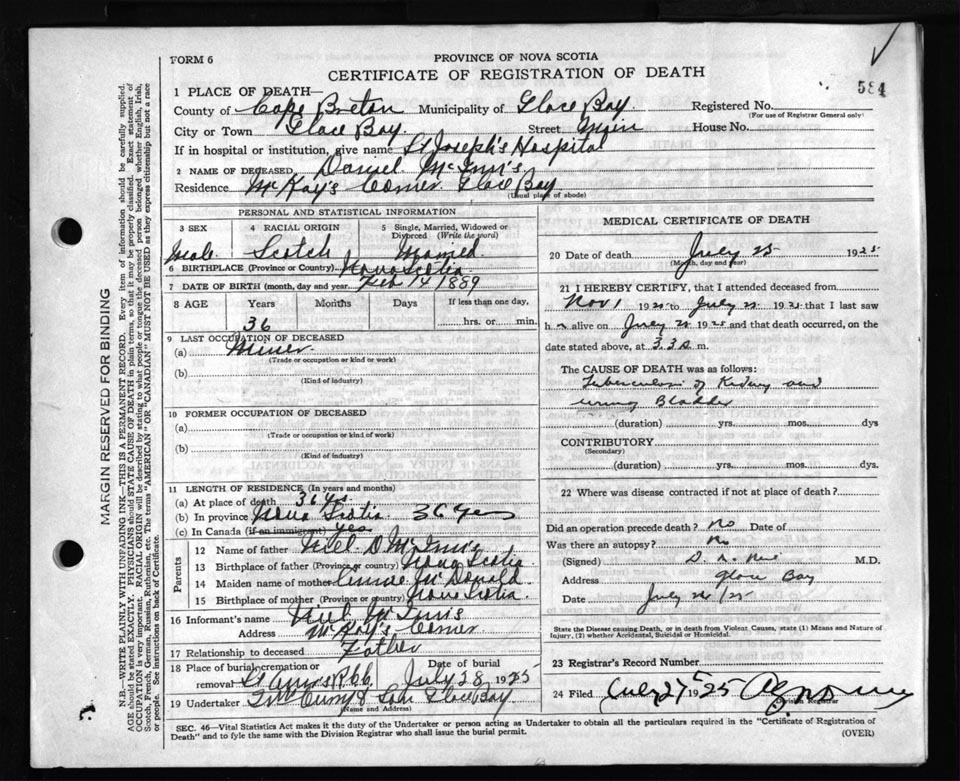 584
FORM 6
PROVINCE OF NOVA SCOTIA
CERTIFICATE OF REGISTRATION OF DEATH
1 PLACE OF DEATH—
County of Cape Breton Municipality of Glace Bay Registered No.
(For use of Registrar General only)
City or Town Glace Bay. Street Main House No.
If in hospital or institution, give name St Joseph's Hospital
2 NAME OF DECEASED Daniel McInnis
Residence McKay's Corner Glace Bay
(Usual place of abode)
PERSONAL AND STATISTICAL INFORMATION
3 SEX 4 RACIAL ORIGIN 5 Single, Married, Widowed or Divorced (Write the word)
Male Scotch Married
6 BIRTHPLACE (Province or Country) Nova Scotia
7 DATE OF BIRTH (month, day and year) Feb 14 1889
8 AGE Years Months Days If less than one day,
36 hrs. or min.
9 LAST OCCUPATION OF DECEASED
(a) Miner
(Trade or occupation or kind or work)
(b)
(Kind of industry)
10 FORMER OCCUPATION OF DECEASED
(a)
(Trade or occupation or kind of work)
(b)
(Kind of industry)
11 LENGTH OF RESIDENCE (In years and months)
(a) At place of death 36 Yrs.
(b) In province Nova Scotia 36 Yers
(c) In Canada (if an immigrant) Yes
Parents
12 Name of father Neil D McInnis
13 Birthplace of father (Province or Country) Nova Scotia
14 Maiden name of mother Annie McDonald
15 Birthplace of mother (Province or country) Nova Scotia
16 Informant's name Neil McInnis
Address McKay's Corner
17 Relationship to deceased Father
18 Place of burial, cremation or removal St Anns Date of burial July 28 1925
19 Undertaker & Son Glace Bay
(Name and Address)
MEDICAL CERTIFICATE OF DEATH
20 Date of death July 25 1925
(Month, day and year)
21 I HEREBY CERTIFY, that I attended deceased from
Nov 1 192 to July 192 that I last saw
h alive on July 192 and that death occurred, on
date stated above, at 3.30 m.
The CAUSE OF DEATH was as follows:
Tuberculosis of Kidney and
urinary Bladder
(duration) yrs. mos. dys
CONTRIBUTORY
(Secondary)
(duration) yrs. mos. dys.
22 Where was disease contracted if not at place of death?
Did an operation precede death? no Date of
Was there an autopsy? No
(Signed) M.D.
Address Glace Bay
Date July 26/25
State the Disease causing Death, or in death from Violent Causes, state (1) Means and Nature of Injury, (2) whether Accidental, Suicidal or Homicidal.
23 Registrar's Record Number
24 Filed July 27 1925
Division Registrar
SEC. 46—Vital Statistics Act makes it the duty of the Undertaker or person acting as Undertaker to obtain all the particulars required in the "Certificate of Registration of
Death" and to fyle the same with the Division Registrar who shall issue the burial permit. (OVER)
MARGIN RESERVED FOR BINDING
N.B.—WRITE PLAINLY WITH UNFADING INK—THIS IS A PERMANENT RECORD. Every item of information should be carefully supplied.
AGE should be stated EXACTLY. PHYSICIANS should STATE CAUSE OF DEATH in plain terms, so that it may be properly classified. Exact statement of
OCCUPATION is very important. RACIAL ORIGIN will be described by stating to what people or tongue the deceased person belonged whether English, Irish,
Scotch, French, German, Russian, Ruthenian, etc. The terms "AMERICAN" OR "CANADIAN" MUST NOT BE USED as they express citizenship but not a race
or people. See instructions on back of Certificate.